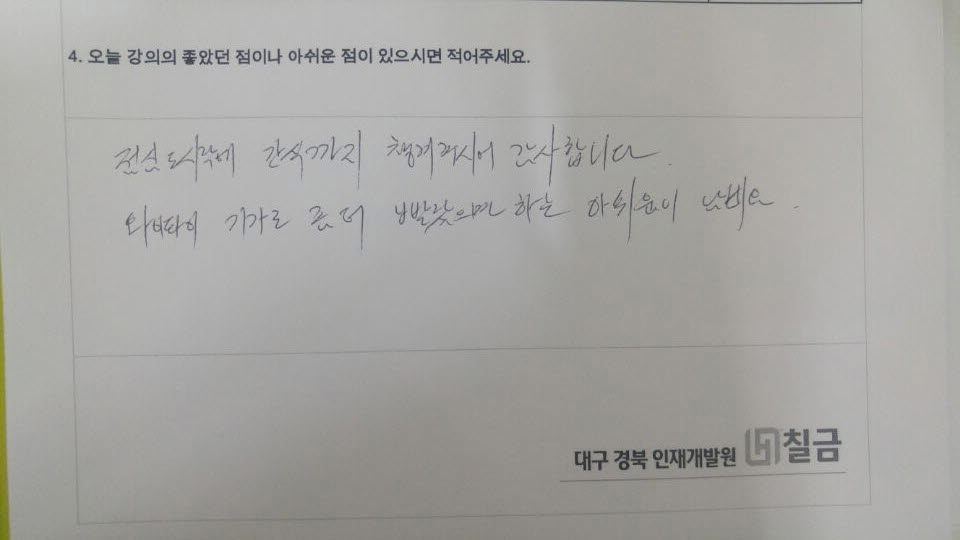 4. 오늘 강의의 좋았던 점이나 아쉬운 점이 있으시면 적어주세요.
점심 도시락에 간식까지 챙겨주시어 감사합니다.
와이파이 기가로 좀 더 빨랐으면 하는 아쉬움이 남네요.
대구 경북 인재개발원 칠금